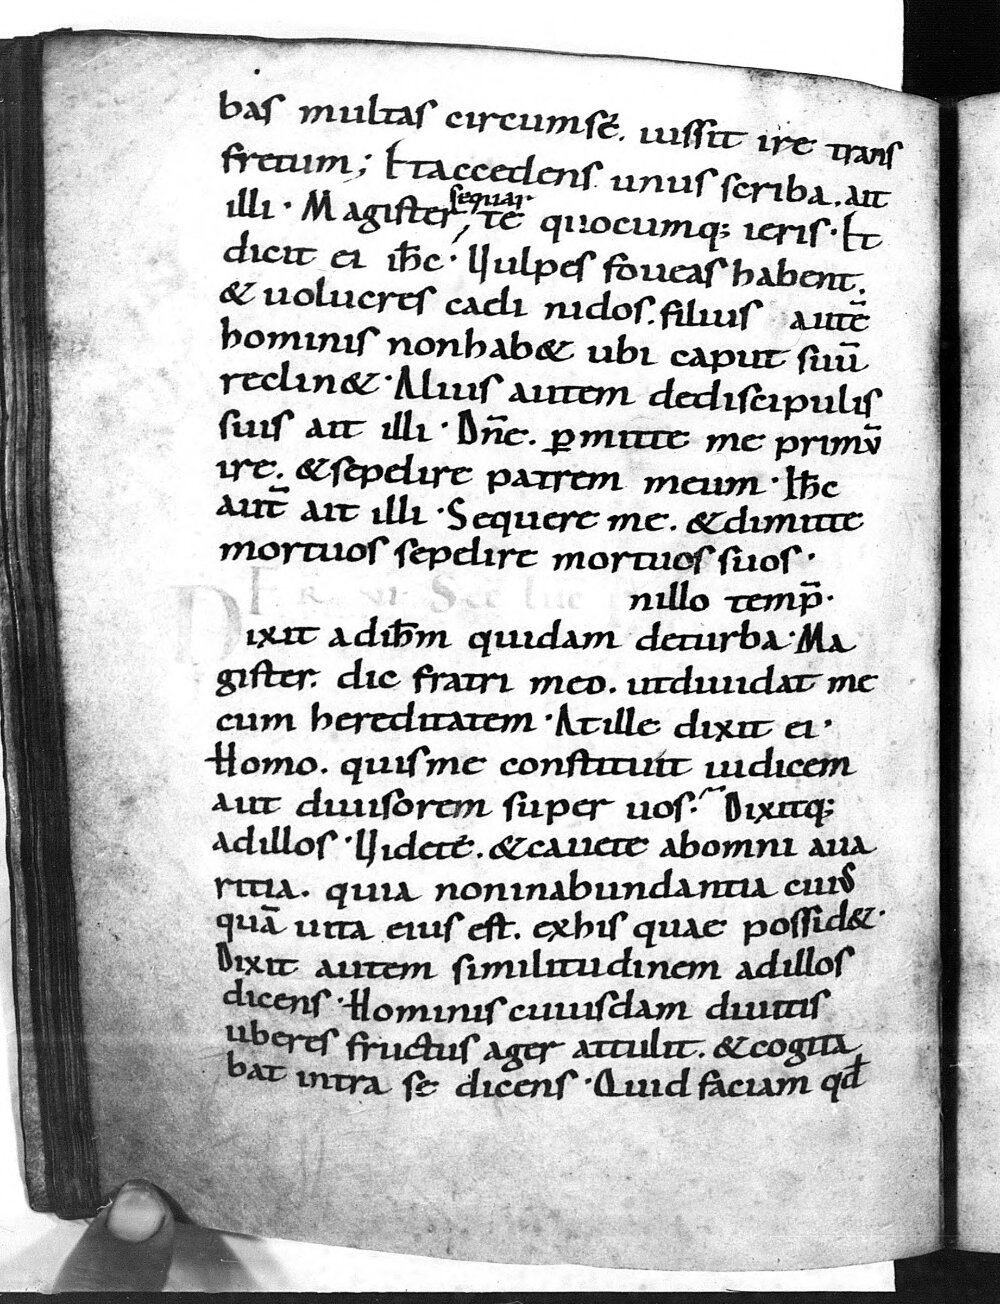 bas multas circumsē. iussit ire trans
fretum; Et accedens unus scriba. ait
illi. Magister, sequar te quocumq; ieris. Et
dicit ei ih̄c. Vulpes foueas habent.
& uolucres caeli nidos. filius autē
hominis non hab& ubi caput suū
reclin&. Alius autem de discipulis
suis ait illi. Dn̄e. ꝑmitte me primū
ire. & sepelire patrem meum. Ih̄c
aut̄ ait illi. Sequere me. & dimitte
mortuos sepelire mortuos suos.
FR VI Sec luc
nillo temp̄.
Dixit ad ih̄m quidam de turba. Ma
gister. dic fratri meo. ut diuidat me
cum hereditatem. At ille dixit ei.
Homo. quis me constituit iudicem
aut diuisorem super uos. Dixitq;
ad illos. Videte. & cauete ab omni aua
ritia. quia non in abundantia cuius
quā uita eius est. ex his quae possid&.
Dixit autem similitudinem ad illos
dicens. Hominis cuiusdam diuitis
uberes fructus ager attulit. & cogita
bat intra se dicens. Quid faciam qd̄